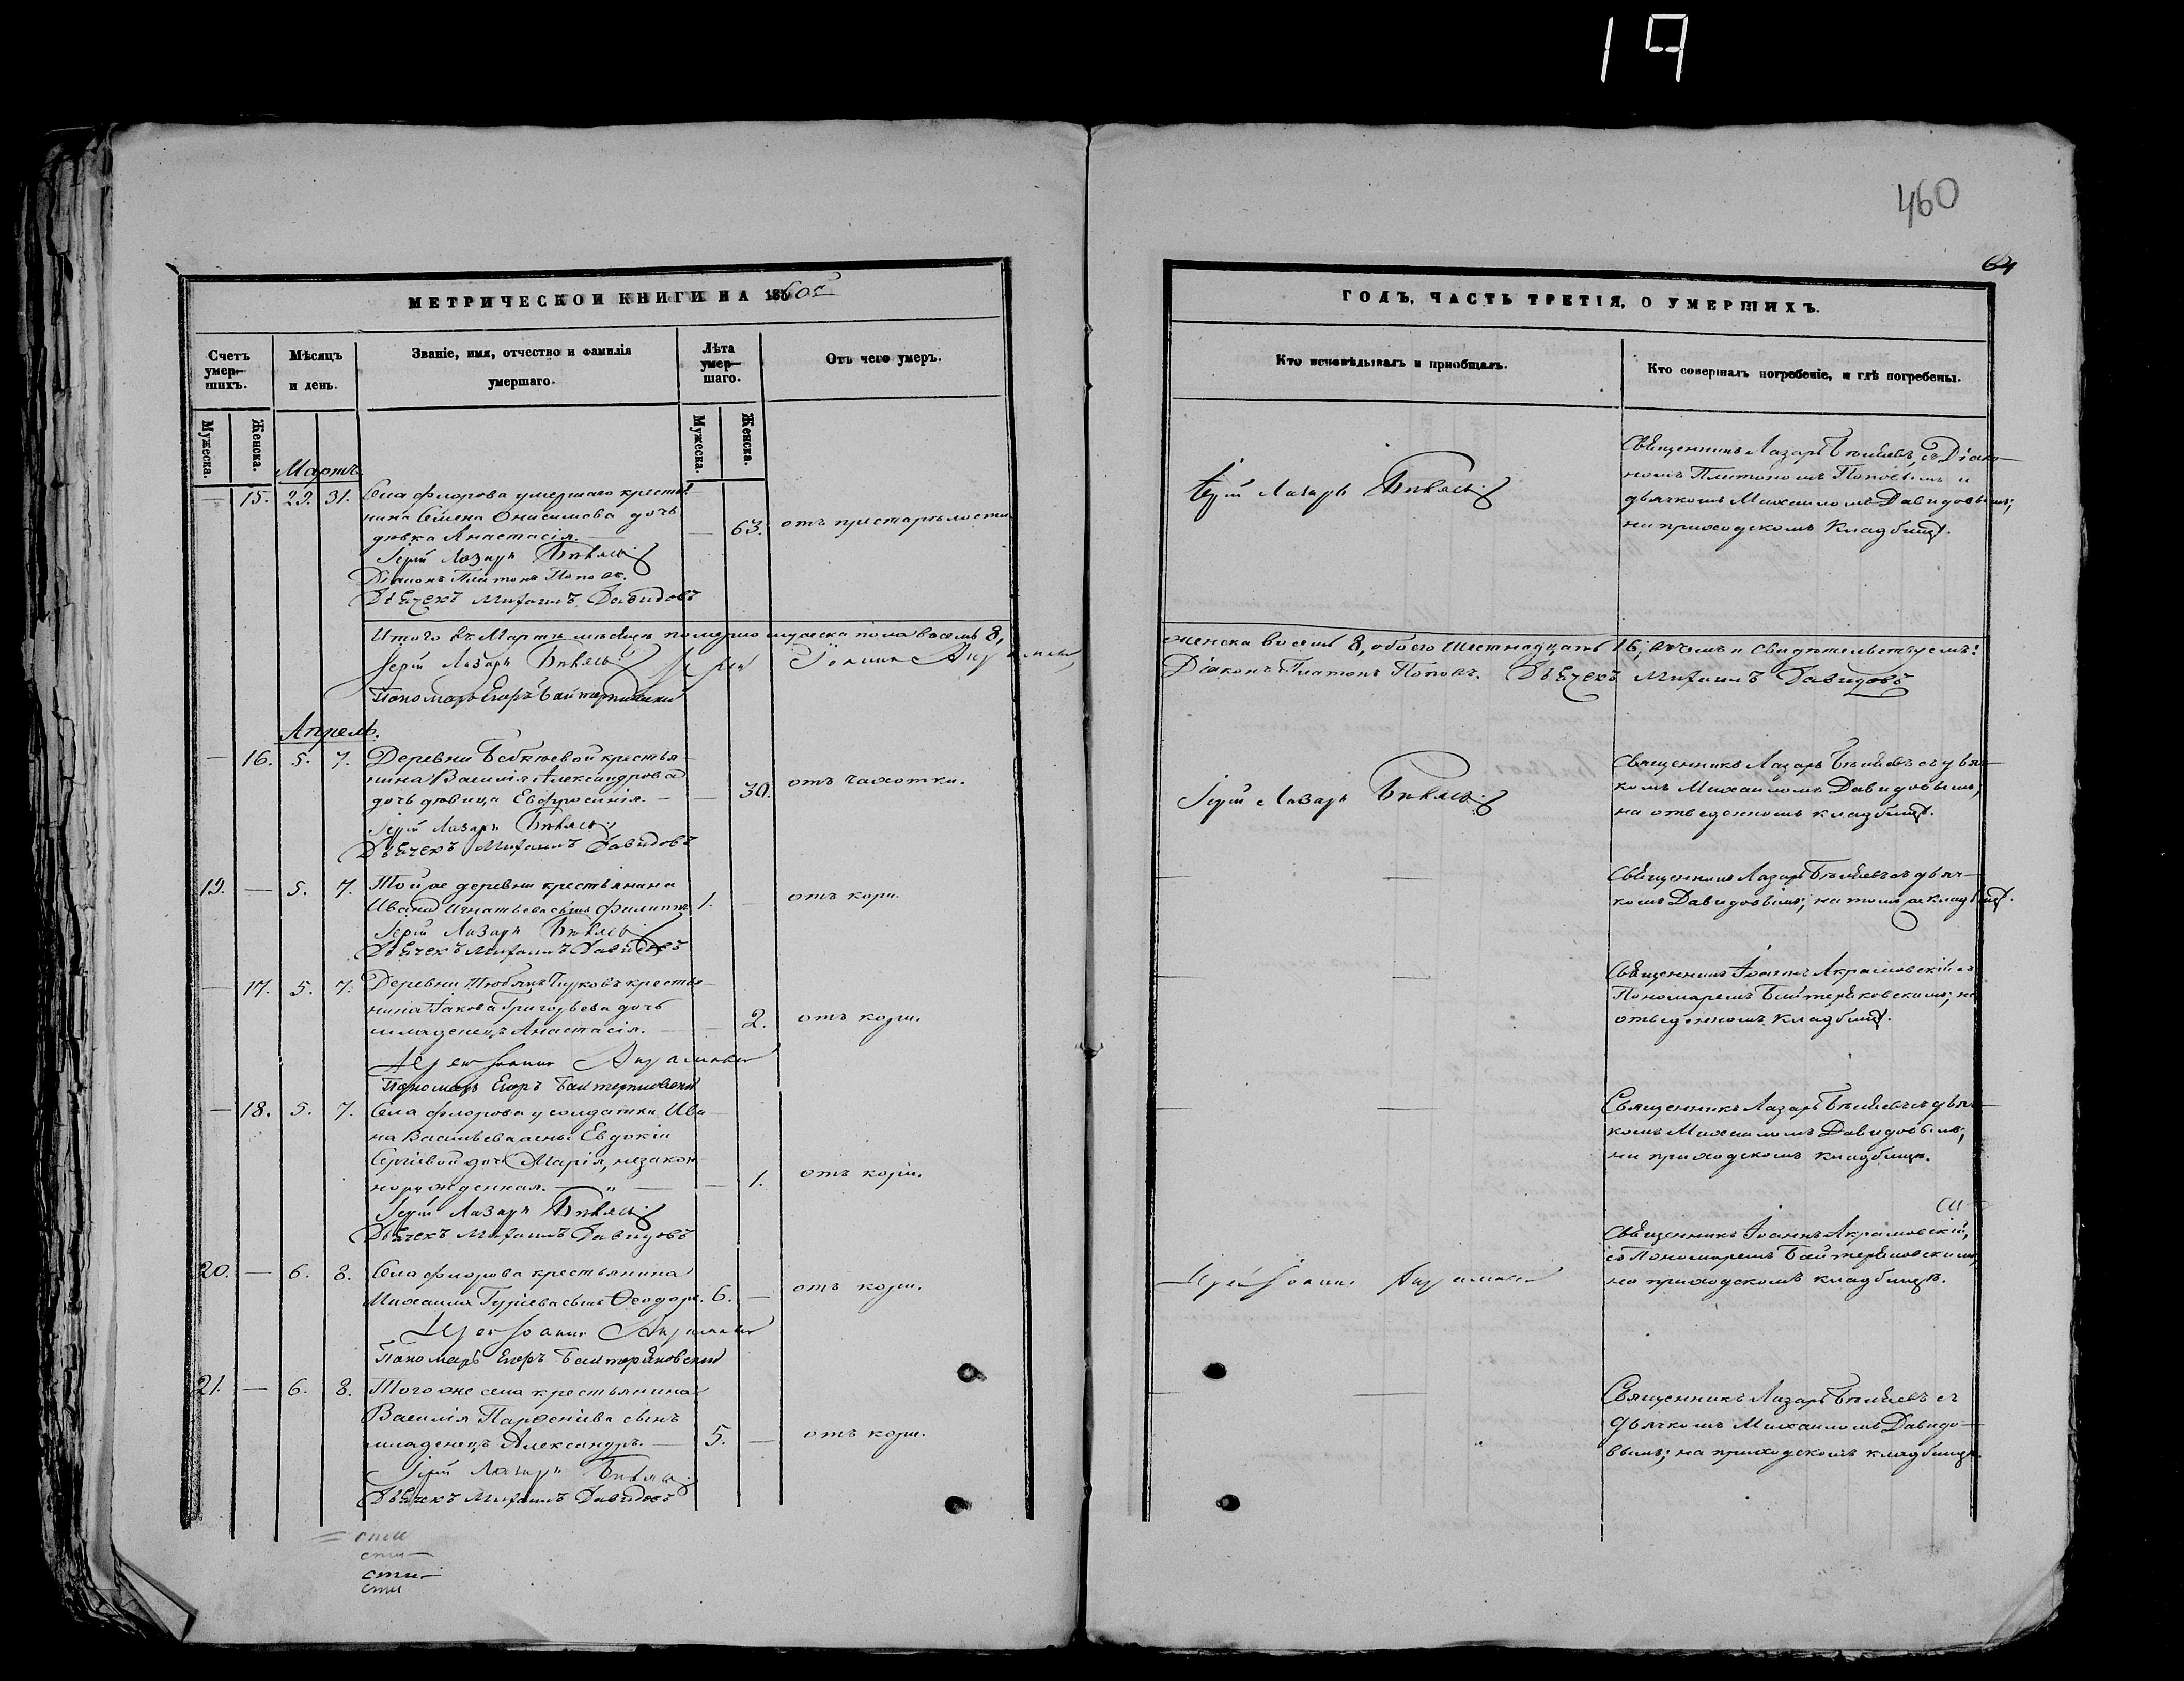 19
460
64
МЕТРИЧЕСКОЙ КНИГИ НА 1860й
Счетъ умер-шихъ.
Мѣсяцъ и день.
Званіе, имя, отчество и фамилія умершаго.
Лѣта умер-шаго.
Отъ чего умеръ.
Мужеска.
Женска.
Мужеска.
Женска.
Мартъ.
— 15. 29. 31. Села Флорова умершаго крестья-
нина Семена Онисимова дочь
дѣвка Анастасія. — 63. отъ престарѣлости
Іерей Лазарь
Діаконъ Платонъ Поповъ.
Дьячекъ Михаилъ Давидовъ
Итого въ Мартѣ мѣсяцѣ померло мужеска пола восемь 8,
Іерей Лазарь
Іерей Іоаннъ
Пономарь Егоръ
Апрель.
— 16. 5. 7. Деревни крестья-
нина Василія Александрова
дочь дѣвица Евфросинія. — — 30. отъ чахотки.
Іерей Лазарь
Дьячекъ Михаилъ Давидовъ
19. — 5. 7. Той же деревни крестьянина
Ивана Игнатьева сынъ Филиппъ 1. — отъ кори.
Іерей Лазарь
Дьячекъ Михаилъ Давидовъ
— 17. 5. 7. Деревни крестья-
нина Іакова Григорьева дочь
младенецъ Анастасія. — — 2. отъ кори.
Іерей Іоаннъ
Пономарь Егоръ
— 18. 5. 7. Села Флорова у солдатки Ива-
на Васильева жены Евдокіи
Сергіевой дочь Марія, незакон-
норожденная. — " — — 1. отъ кори.
Іерей Лазарь
Дьячекъ Михаилъ Давидовъ
20. — 6. 8. Села Флорова крестьянина
Михаила Гуріева сынъ Ѳеодоръ. 6. — отъ кори.
Іерей Іоаннъ
Пономарь Егоръ
21. — 6. 8. Того же села крестьянина
Василія Парѳеніева сынъ
младенецъ Александръ. — 5. — отъ кори.
Іерей Лазарь
Дьячекъ Михаилъ Давидовъ
сти
сти
сти
ГОДЪ, ЧАСТЬ ТРЕТІЯ, О УМЕРШИХЪ.
Кто исповѣдывалъ и пріобщалъ.
Кто совершалъ погребеніе, и гдѣ погребены.
Іерей Лазарь
Священникъ Лазарь съ Діако-
номъ Платономъ Поповымъ и
дьячкомъ Михаиломъ Давидовымъ;
на приходскомъ кладбищѣ.
женска восемь 8, обоего шестнадцать 16; въ чемъ и свидѣтельствуемъ:
Діаконъ Платонъ Поповъ. Дьячекъ Михаилъ Давидовъ
Іерей Лазарь
Священникъ Лазарь съ дьяч-
комъ Михаиломъ Давидовымъ;
на отведенномъ кладбищѣ.
Священникъ Лазарь съ дьяч-
комъ Давидовымъ; на томъ же кладбищѣ.
Священникъ Іоаннъ Акрамовскій съ
Пономаремъ на
отведенномъ кладбищѣ.
Священникъ Лазарь съ дьяч-
комъ Михаиломъ Давидовымъ;
на приходскомъ кладбищѣ.
Іерей Іоаннъ
Священникъ Іоаннъ Акрамовскій,
съ Пономаремъ
на приходскомъ кладбищѣ.
Священникъ Лазарь съ
дьячкомъ Михаиломъ Давидо-
вымъ; на приходскомъ кладбищѣ.